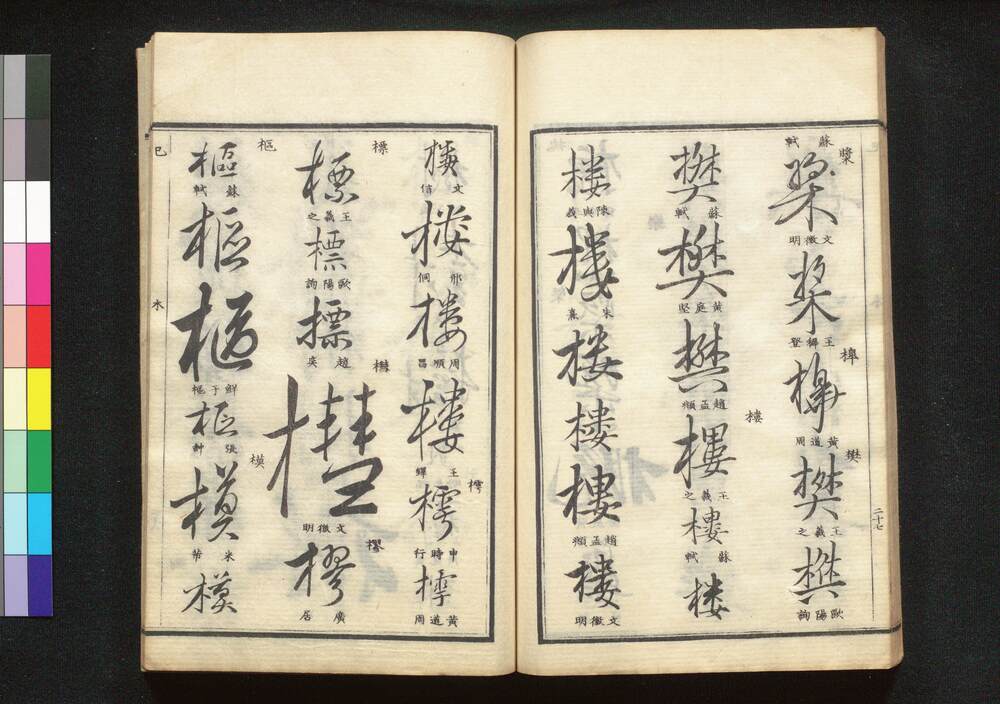 蘇軾
槳
槳
文徵明
槳
王穉登
槹
槹
黃道周
樊
樊
王羲之
樊
歐陽詢
樊
蘇軾
樊
黃庭堅
樊
趙孟頫
樓
樓
王羲之
樓
蘇軾
樓
樓
陳與義
樓
朱熹
樓
樓
樓
趙孟頫
樓
文徵明
二十七
樓
文信
樓
邢侗
樓
周順昌
樓
王鐸
樗
樗
申時行
樗
黃道周
標
標
王羲之
標
歐陽詢
標
趙奕
文徵明
樛
樛
廣居
樞
樞
蘇軾
樞
樞
鮮于樞
樞
模
模
米芾
模
巳
木